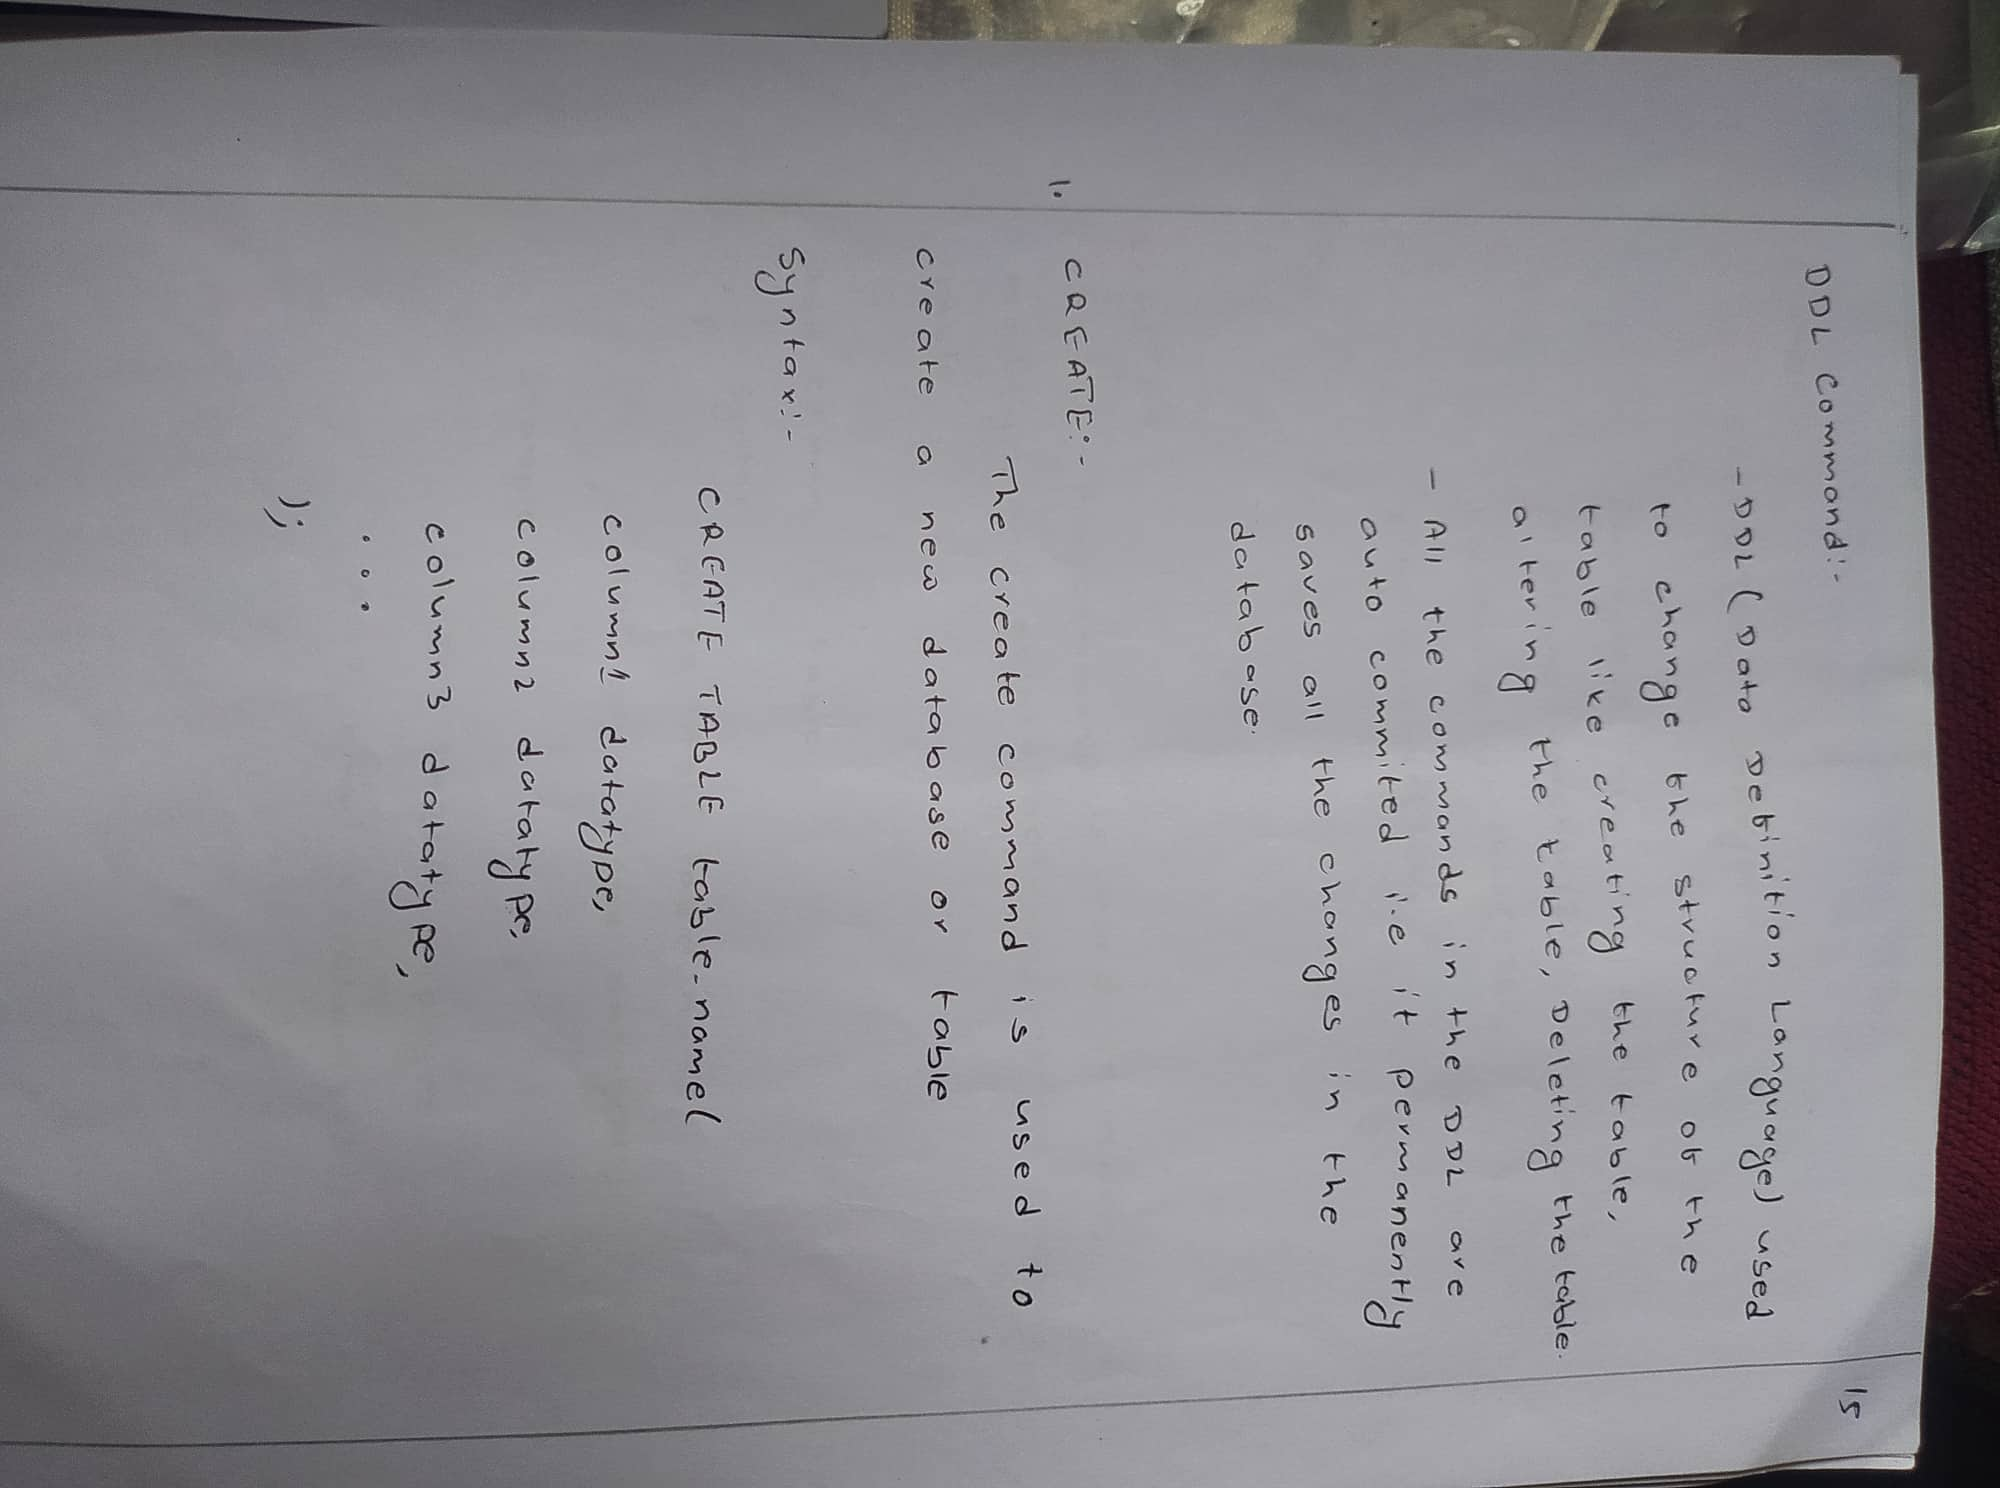 15
DDL Command:-
- DDL (Data Definition Language) used
to change the structure of the
table like creating the table,
altering the table, Deleting the table.
- All the commands in the DDL are
auto commited i.e it permanently
saves all the changes in the
database.
1. CREATE:-
The create command is used to
create a new database or table
Syntax:-
CREATE TABLE table-name(
column1 datatype,
column2 datatype,
column3 datatype,
...
);